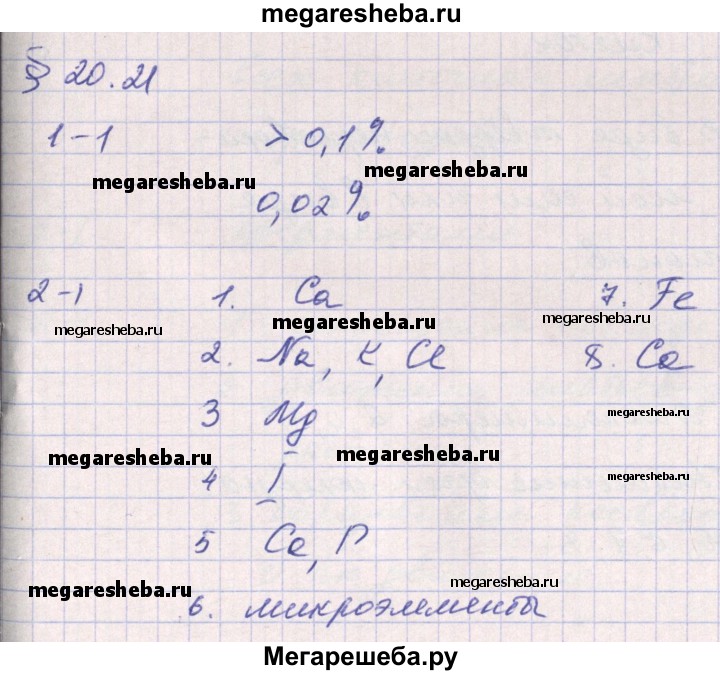 megaresheba.ru
§ 20.21
1-1 > 0,1%
megaresheba.ru
megaresheba.ru
0,02%
2-1 1. Ca 7. Fe
megaresheba.ru megaresheba.ru megaresheba.ru
2. Na, K, Cl 8. Ca
3 Mg megaresheba.ru
megaresheba.ru megaresheba.ru
4 I megaresheba.ru
5 Ca, P
megaresheba.ru megaresheba.ru
6. микроэлементы
Мегарешеба.ру